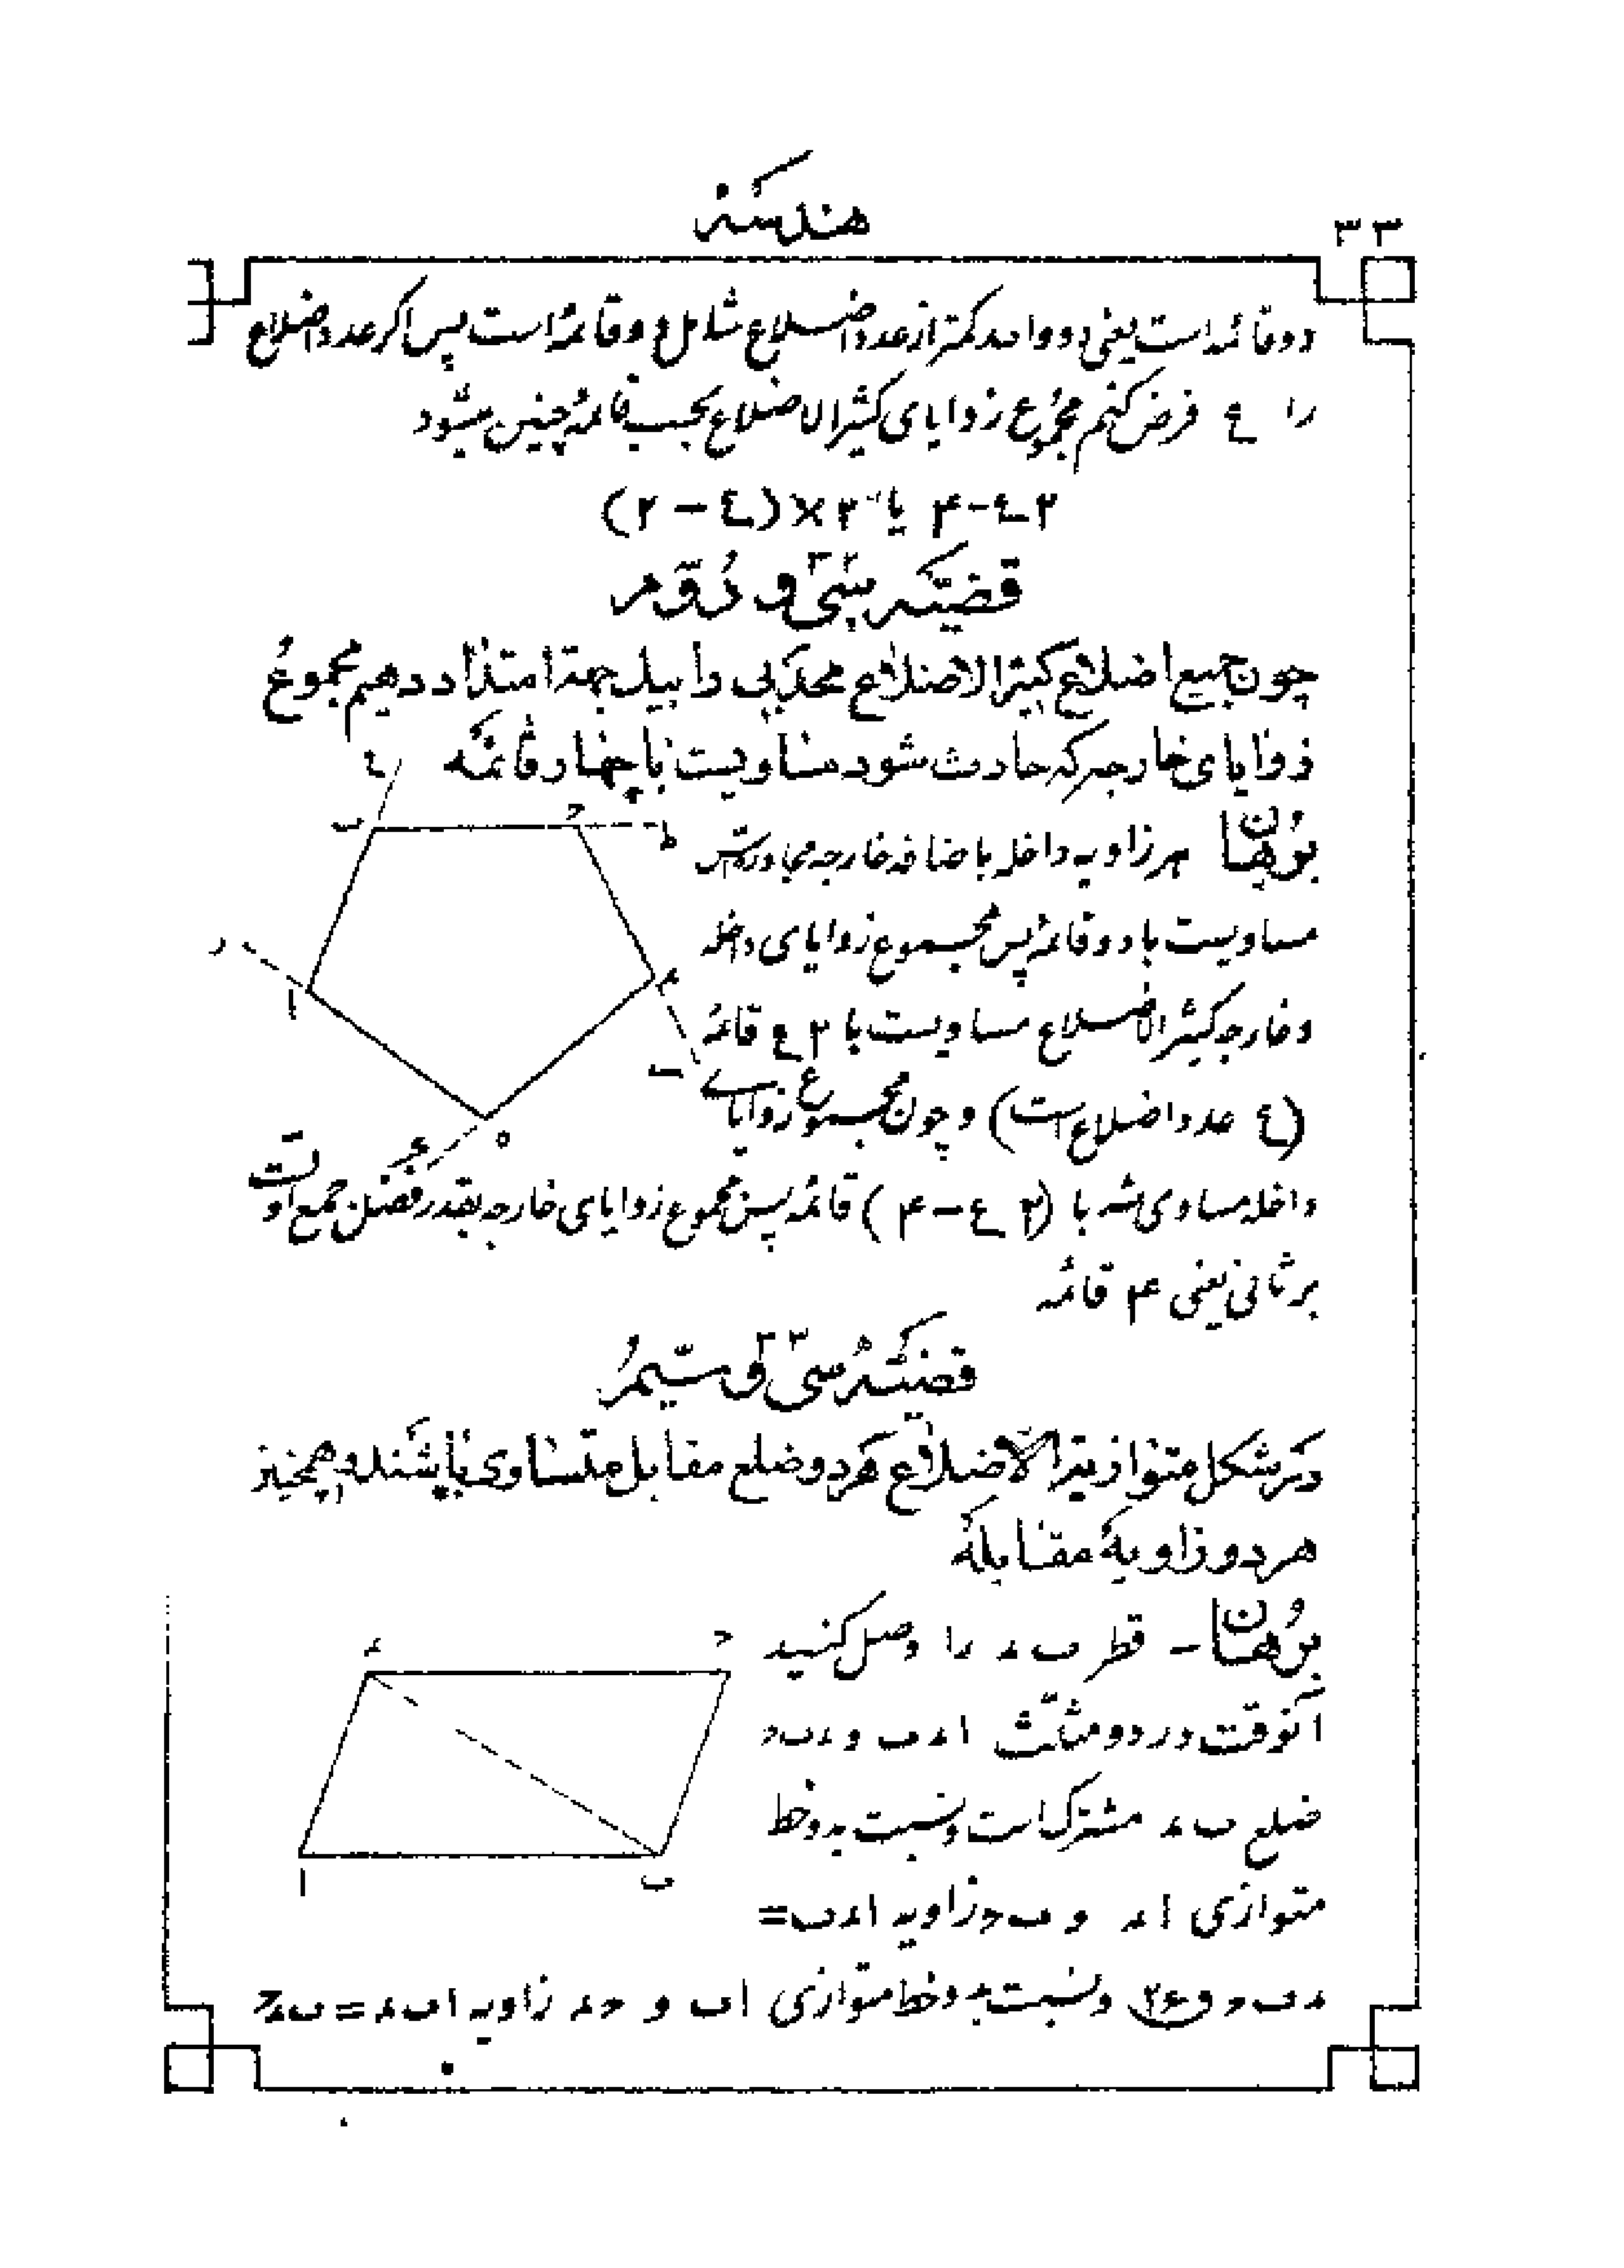 هندسه
۳۳
دو قائمه است یعنی دو واحد کمتر از عدد اضلاع شامل دو قائمه است پس اگر عدد اضلاع
را ع فرض کنیم مجموع زوایای کثیرالاضلاع بحسب قائمه چنین میشود
۲ع-۴ یا ۲×(ع-۲)
قضیه سی و دوم ۳۲
چون جمیع اضلاع کثیرالاضلاع محدبی را بیک جهة امتداد دهیم مجموع
زوایای خارجه که حادث شود مساویست با چهار قائمه
برهان هر زاویه داخله باضافه خارجه مجاورش
مساویست با دو قائمه پس مجموع زوایای داخله
و خارجه کثیرالاضلاع مساویست با ۲ع قائمه
(ع عدد اضلاع است) و چون مجموع زوایای
داخله مساوی شد با (۲ع-۴) قائمه پس مجموع زوایای خارجه بقدر فضل جمع اول است
بر ثانی یعنی ۴ قائمه
قضیه سی و سیم ۳۳
در شکل متوازی‌الاضلاع هر دو ضلع مقابل متساوی باشند و همچنین
هر دو زاویه مقابله
برهان - قطر ب د را وصل کنید
آنوقت در دو مثلث ا د ب و د ب ح
ضلع ب د مشترک است و نسبت بدو خط
متوازی ا د و ب ح زاویه ا د ب =
د ب ح و نسبت بدو خط متوازی ا ب و ح د زاویه ا ب د = ب د ح